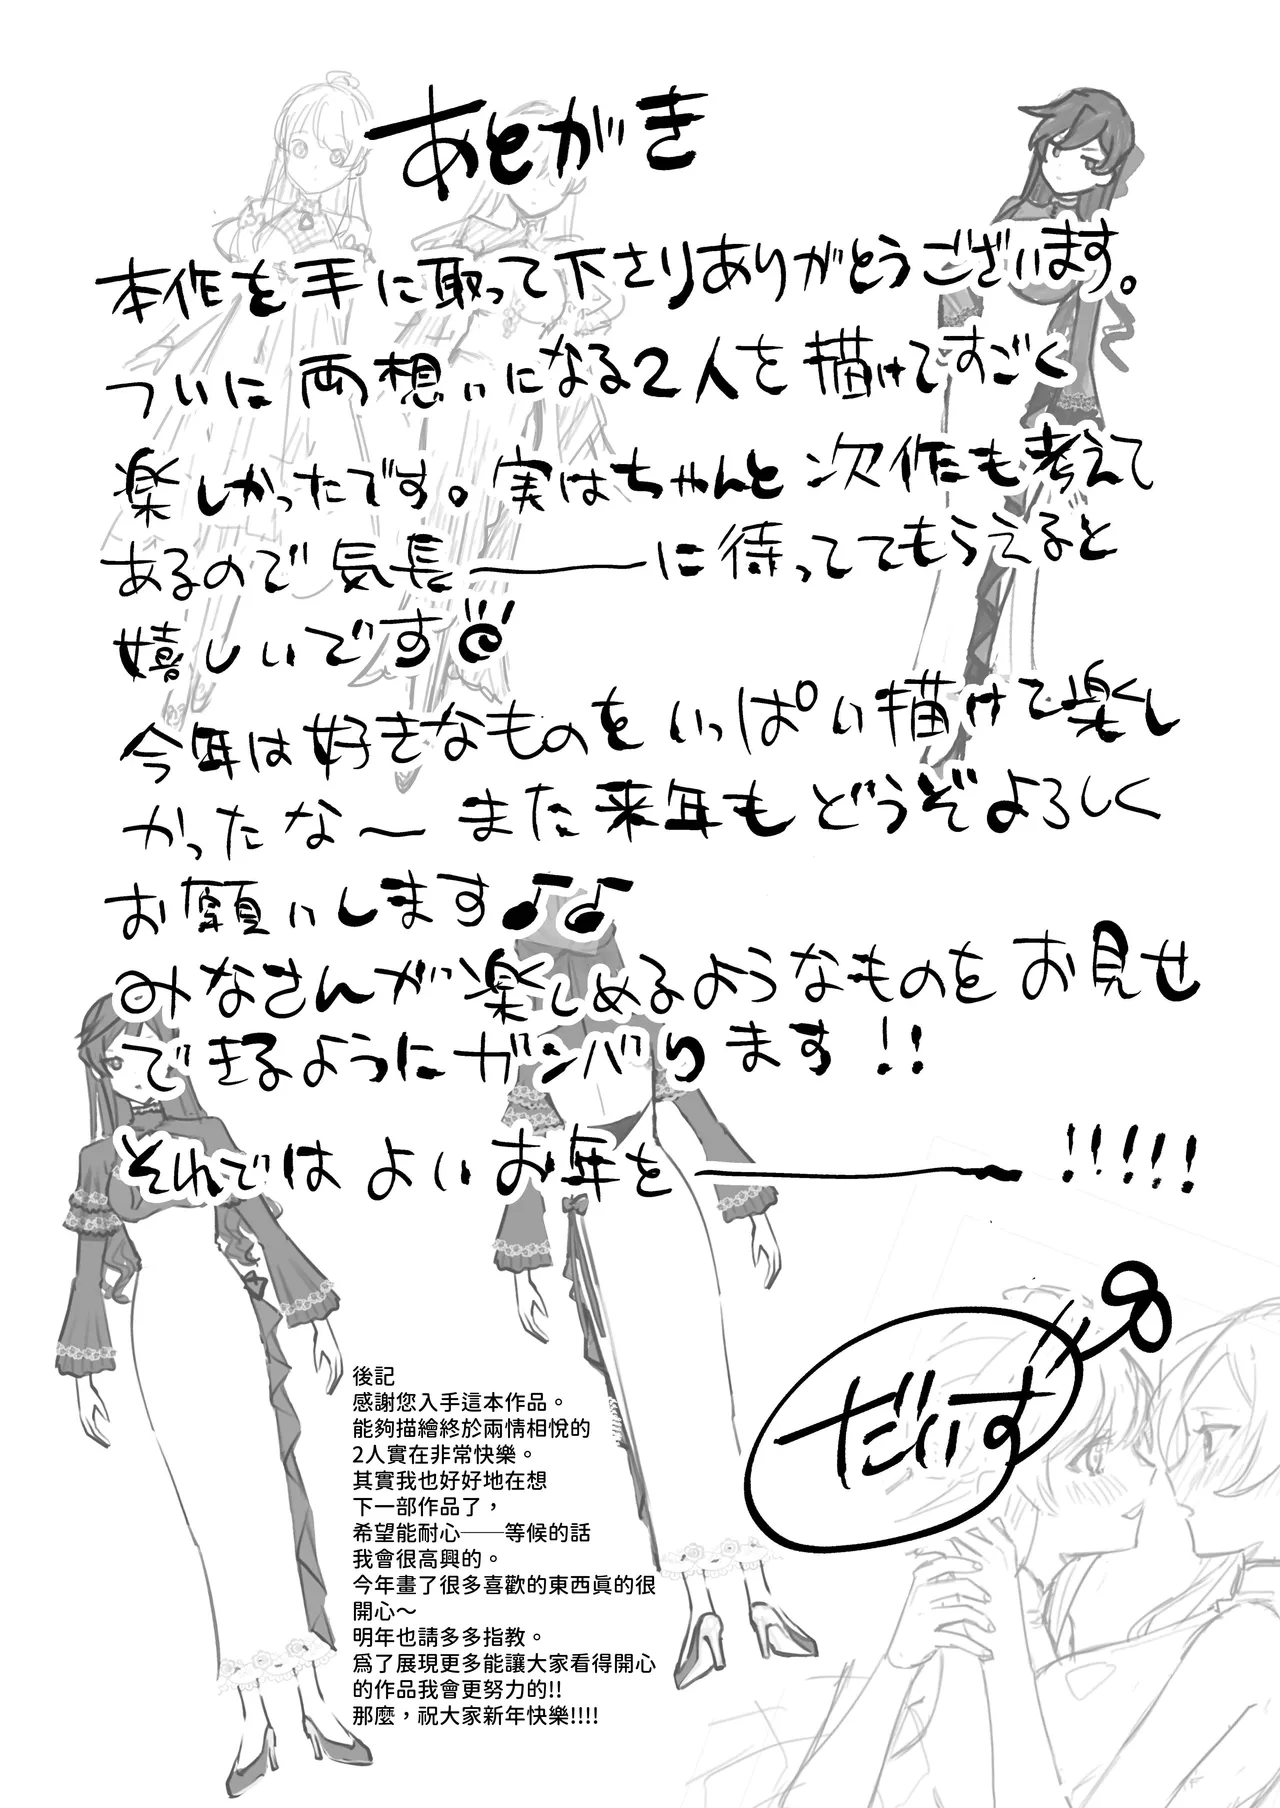 あとがき
本作を手に取って下さりありがとうございます。
ついに両想いになる2人を描けてすごく
楽しかったです。実はちゃんと次作も考えて
あるので気長――――に待っててもらえると
嬉しいです
今年は好きなものをいっぱい描けて楽し
かったな～また来年もどうぞよろしく
お願いします♪♪
みなさんが楽しめるようなものをお見せ
できるようにガンバります!!
それではよいお年を――――!!!!!
だいす
後記
感謝您入手這本作品。
能夠描繪終於兩情相悅的
2人實在非常快樂。
其實我也好好地在想
下一部作品了，
希望能耐心──等候的話
我會很高興的。
今年畫了很多喜歡的東西眞的很
開心～
明年也請多多指教。
爲了展現更多能讓大家看得開心
的作品我會更努力的!!
那麼，祝大家新年快樂!!!!